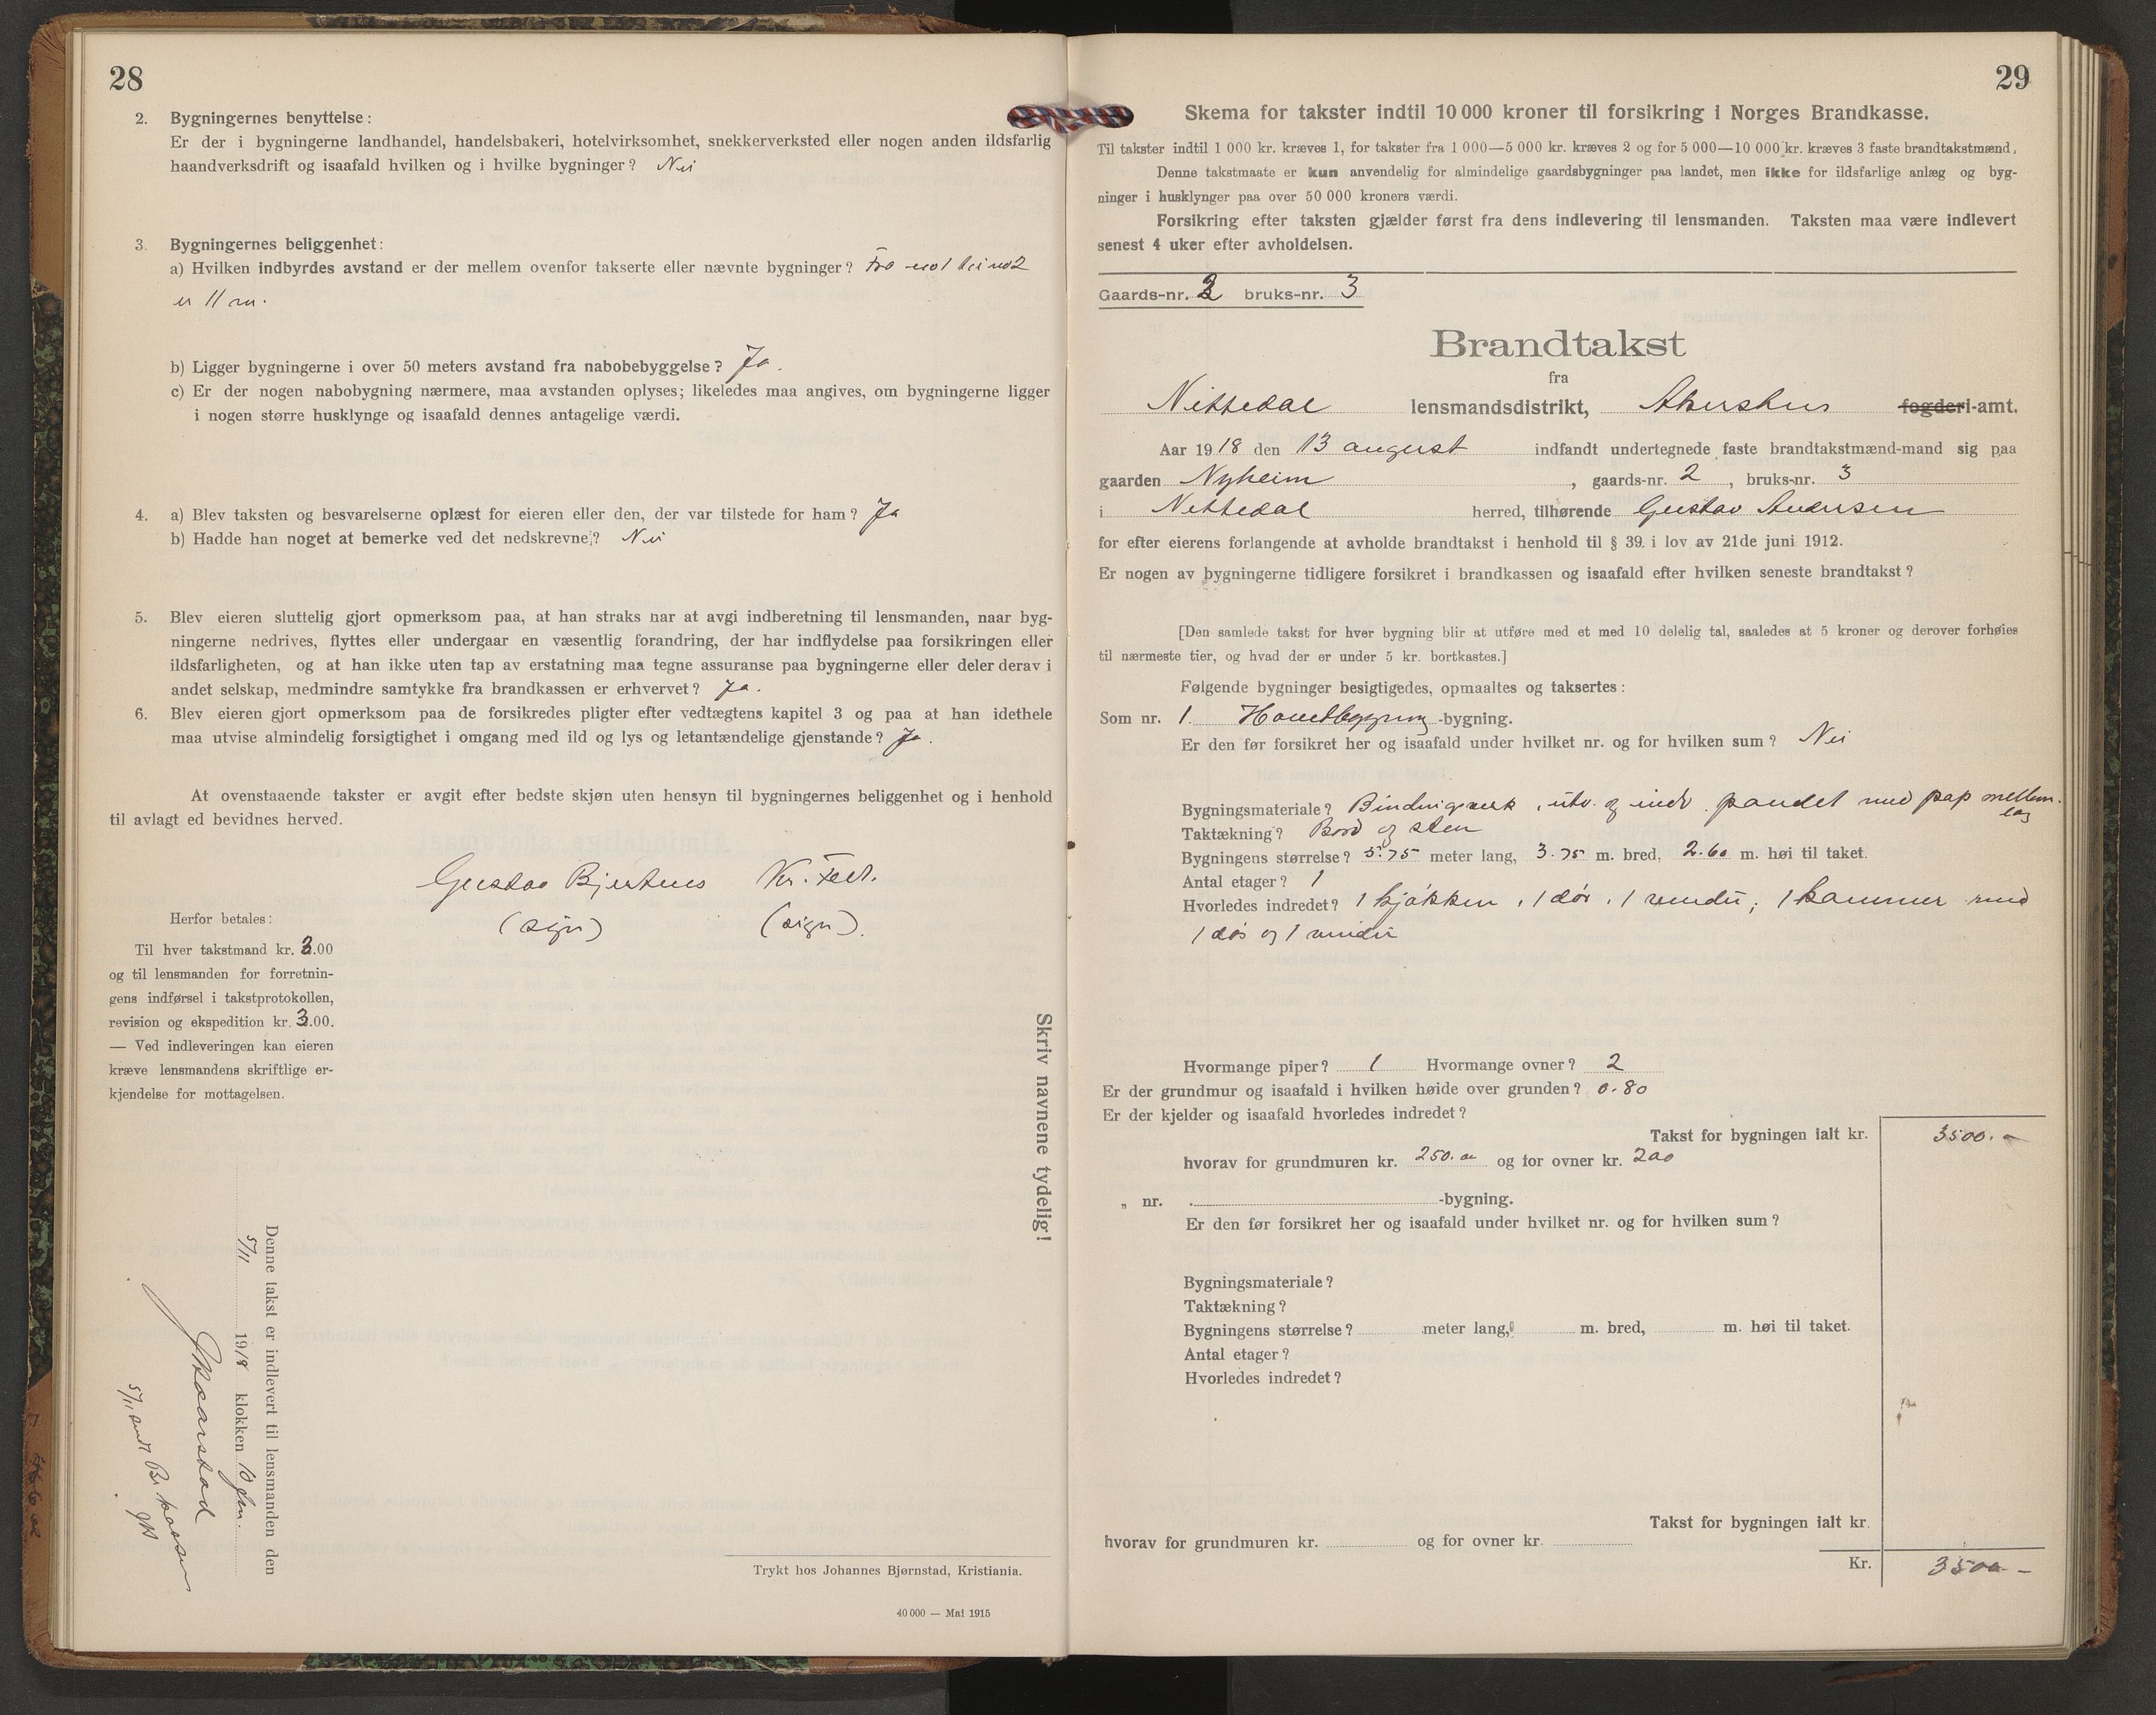 28
2. Bygningernes benyttelse:
Er der i bygningerne landhandel, handelsbakeri, hotelvirksomhet, snekkerverksted eller nogen anden ildsfarlig
haandverksdrift og isaafald hvilken og i hvilke bygninger? Nei
3. Bygningernes beliggenhet:
a) Hvilken indbyrdes avstand er der mellem ovenfor takserte eller nævnte bygninger? Fra no 1 til no 2
er 11 m.
b) Ligger bygningerne i over 50 meters avstand fra nabobebyggelse? Ja.
c) Er der nogen nabobygning nærmere, maa avstanden oplyses; likeledes maa angives, om bygningerne ligger
i nogen større husklynge og isaafald dennes antagelige værdi.
4. a) Blev taksten og besvarelserne oplæst for eieren eller den, der var tilstede for ham? Ja
b) Hadde han noget at bemerke ved det nedskrevne? Nei
5. Blev eieren sluttelig gjort opmerksom paa, at han straks nar at avgi indberetning til lensmanden, naar byg-
ningerne nedrives, flyttes eller undergaar en væsentlig forandring, der har indflydelse paa forsikringen eller
ildsfarligheten, og at han ikke uten tap av erstatning maa tegne assuranse paa bygningerne eller deler derav i
andet selskap, medmindre samtykke fra brandkassen er erhvervet? Ja.
6. Blev eieren gjort opmerksom paa de forsikredes pligter efter vedtægtens kapitel 3 og paa at han idethele
maa utvise almindelig forsigtighet i omgang med ild og lys og letantændelige gjenstande? Ja.
At ovenstaaende takster er avgit efter bedste skjøn uten hensyn til bygningernes beliggenhet og i henhold
til avlagt ed bevidnes herved.
Gustav Bjertnes Kr.
(sign) (sign).
Herfor betales:
Til hver takstmand kr. 3.00
og til lensmanden for forretnin-
gens indførsel i takstprotokollen,
revision og ekspedition kr. 3.00.
— Ved indleveringen kan eieren
kræve lensmandens skriftlige er-
kjendelse for mottagelsen.
Skriv navnene tydelig!
Denne takst er indlevert til lensmanden den
5/11 1918 klokken 10 fm.
5/11 sendt Br. kassen
Trykt hos Johannes Bjørnstad, Kristiania.
40 000 — Mai 1915
29
Skema for takster indtil 10 000 kroner til forsikring i Norges Brandkasse.
Til takster indtil 1 000 kr. kræves 1, for takster fra 1 000—5 000 kr. kræves 2 og for 5 000—10 000 kr. kræves 3 faste brandtakstmænd.
Denne takstmaate er kun anvendelig for almindelige gaardsbygninger paa landet, men ikke for ildsfarlige anlæg og byg-
ninger i husklynger paa over 50 000 kroners værdi.
Forsikring efter taksten gjælder først fra dens indlevering til lensmanden. Taksten maa være indlevert
senest 4 uker efter avholdelsen.
Gaards-nr. 2 bruks-nr. 3
Brandtakst
fra
Nittedal lensmandsdistrikt, Akershus fogderi-amt.
Aar 1918 den 13 august indfandt undertegnede faste brandtakstmænd-mand sig paa
gaarden Nyheim, gaards-nr. 2, bruks-nr. 3
i Nittedal herred, tilhørende Gustav Andersen
for efter eierens forlangende at avholde brandtakst i henhold til § 39. i lov av 21de juni 1912.
Er nogen av bygningerne tidligere forsikret i brandkassen og isaafald efter hvilken seneste brandtakst?
[Den samlede takst for hver bygning blir at utføre med et med 10 delelig tal, saaledes at 5 kroner og derover forhøies
til nærmeste tier, og hvad der er under 5 kr. bortkastes.]
Følgende bygninger besigtigedes, opmaaltes og taksertes:
Som nr. 1. Hovedbygning -bygning.
Er den før forsikret her og isaafald under hvilket nr. og for hvilken sum? Nei
Bygningsmateriale? Bindingsverk, utv. og indv. panelet med pap mellem-
lag
Taktækning? Bord og sten
Bygningens størrelse? 5.75 meter lang, 3.75 m. bred, 2.60 m. høi til taket.
Antal etager? 1
Hvorledes indredet? 1 kjøkken, 1 dør, 1 vindu; 1 kammer med
1 dør og 1 vindu
Hvormange piper? 1 Hvormange ovner? 2
Er der grundmur og isaafald i hvilken høide over grunden? 0.80
Er der kjelder og isaafald hvorledes indredet?
Takst for bygningen ialt kr. 3500.-
hvorav for grundmuren kr. 250.00 og for ovner kr. 200
„ nr. -bygning.
Er den før forsikret her og isaafald under hvilket nr. og for hvilken sum?
Bygningsmateriale?
Taktækning?
Bygningens størrelse? meter lang, m. bred, m. høi til taket.
Antal etager?
Hvorledes indredet?
Takst for bygningen ialt kr.
hvorav for grundmuren kr. og for ovner kr.
Kr. 3500 -